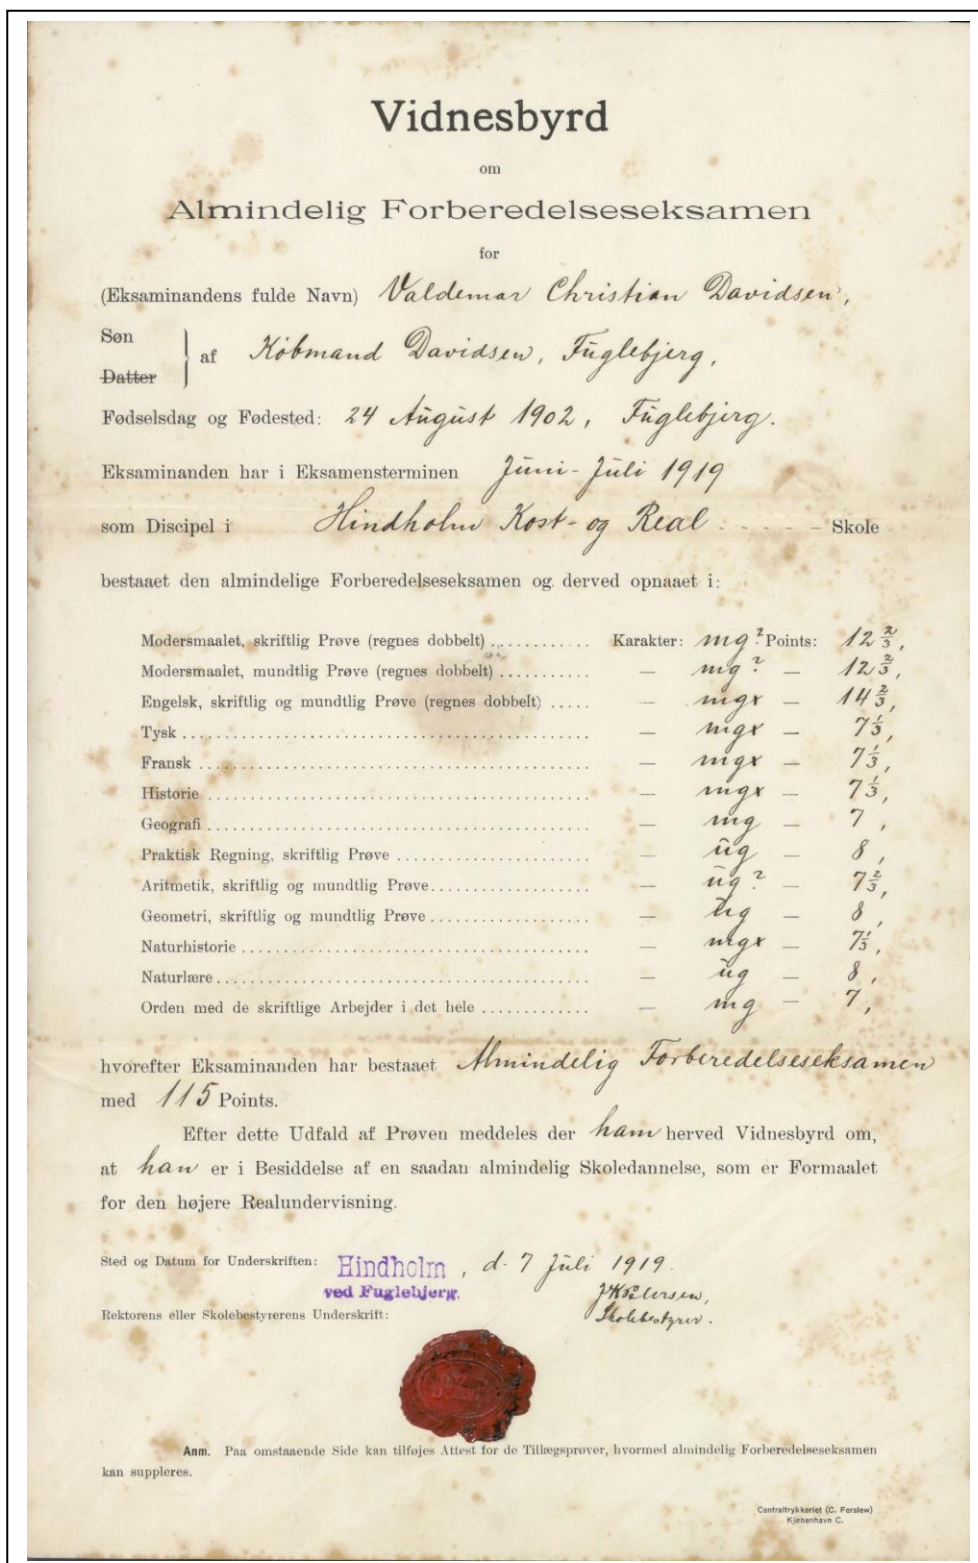 Vidnesbyrd
om
Almindelig Forberedelseseksamen
for
(Eksaminandens fulde Navn) Valdemar Christian Davidsen,
Søn
Datter
af Købmand Davidsen, Fuglebjerg,
Fødselsdag og Fødested: 24 August 1902, Fuglebjerg.
Eksaminanden har i Eksamensterminen Juni-Juli 1919
som Discipel i Hindholm Kost- og Real - - - - - Skole
bestaaet den almindelige Forberedelseseksamen og derved opnaaet i:
Modersmaalet, skriftlig Prøve (regnes dobbelt) ........... Karakter: mg? Points: 12 2/3,
Modersmaalet, mundtlig Prøve (regnes dobbelt) ........... — mg? — 12 2/3,
Engelsk, skriftlig og mundtlig Prøve (regnes dobbelt) ..... — mgx — 14 2/3,
Tysk ........... — mgx — 7 1/3,
Fransk ........... — mgx — 7 1/3,
Historie ........... — mgx — 7 1/3,
Geografi ........... — mg — 7,
Praktisk Regning, skriftlig Prøve ........... — ug — 8,
Aritmetik, skriftlig og mundtlig Prøve ........... — ug? — 7 2/3,
Geometri, skriftlig og mundtlig Prøve ........... — ug — 8,
Naturhistorie ........... — mgx — 7 1/3,
Naturlære ........... — ug — 8,
Orden med de skriftlige Arbejder i det hele ........... — mg — 7,
hvorefter Eksaminanden har bestaaet Almindelig Forberedelseseksamen
med 115 Points.
Efter dette Udfald af Prøven meddeles der ham herved Vidnesbyrd om,
at han er i Besiddelse af en saadan almindelig Skoledannelse, som er Formaalet
for den højere Realundervisning.
Sted og Datum for Underskriften: Hindholm, d. 7 Juli 1919.
ved Fuglebjerg.
Rektorens eller Skolebestyrerens Underskrift: Petersen,
Skolebestyrer.
Anm. Paa omstaaende Side kan tilføjes Attest for de Tillægsprøver, hvormed almindelig Forberedelseseksamen
kan suppleres.
Centraltrykkeriet (C. Ferslew)
Kjøbenhavn C.